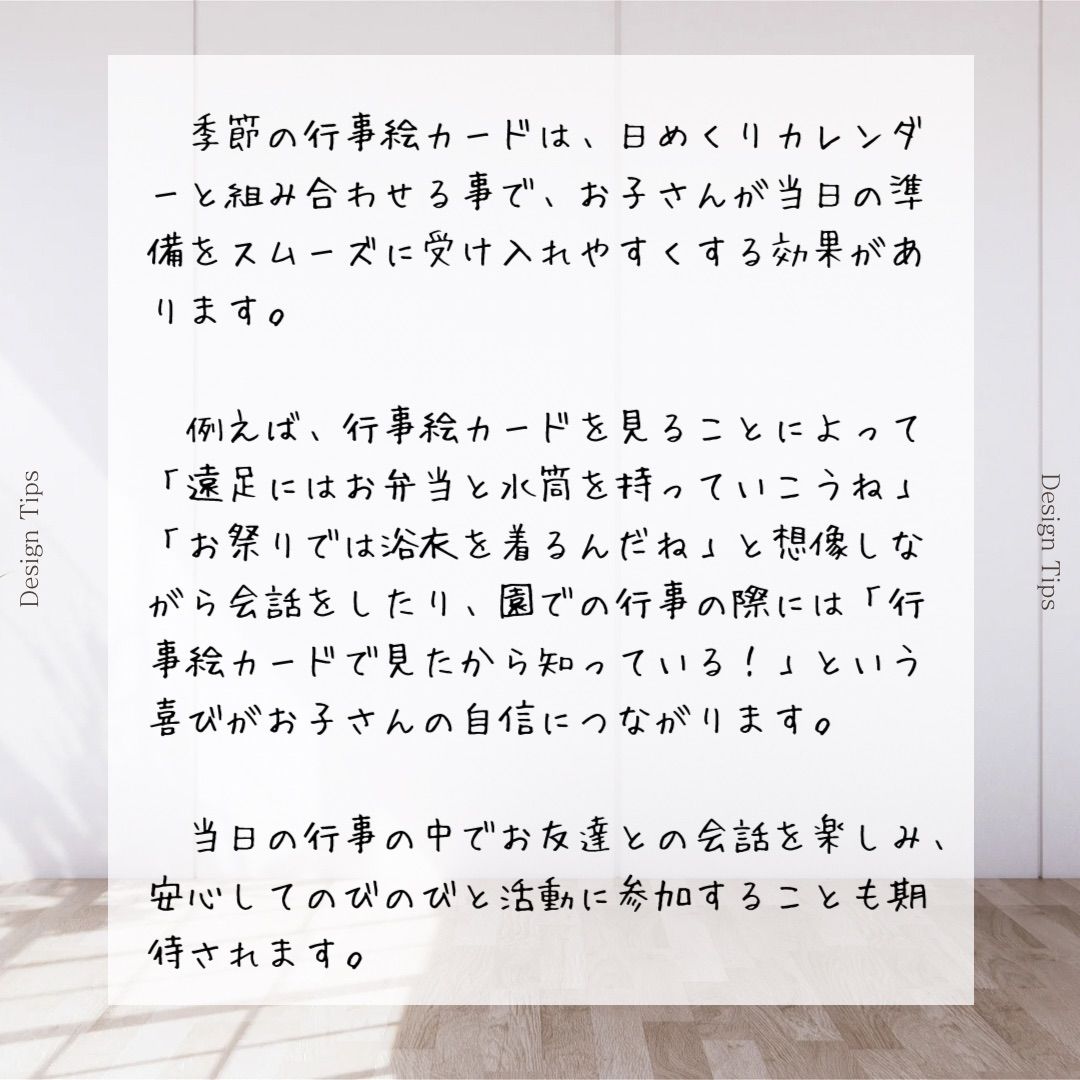 季節の行事絵カードは、日めくりカレンダ
ーと組み合わせる事で、お子さんが当日の準
備をスムーズに受け入れやすくする効果があ
ります。
例えば、行事絵カードを見ることによって
「遠足にはお弁当と水筒を持っていこうね」
「お祭りでは浴衣を着るんだね」と想像しな
がら会話をしたり、園での行事の際には「行
事絵カードで見たから知っている！」という
喜びがお子さんの自信につながります。
当日の行事の中でお友達との会話を楽しみ、
安心してのびのびと活動に参加することも期
待されます。
Design Tips
Design Tips